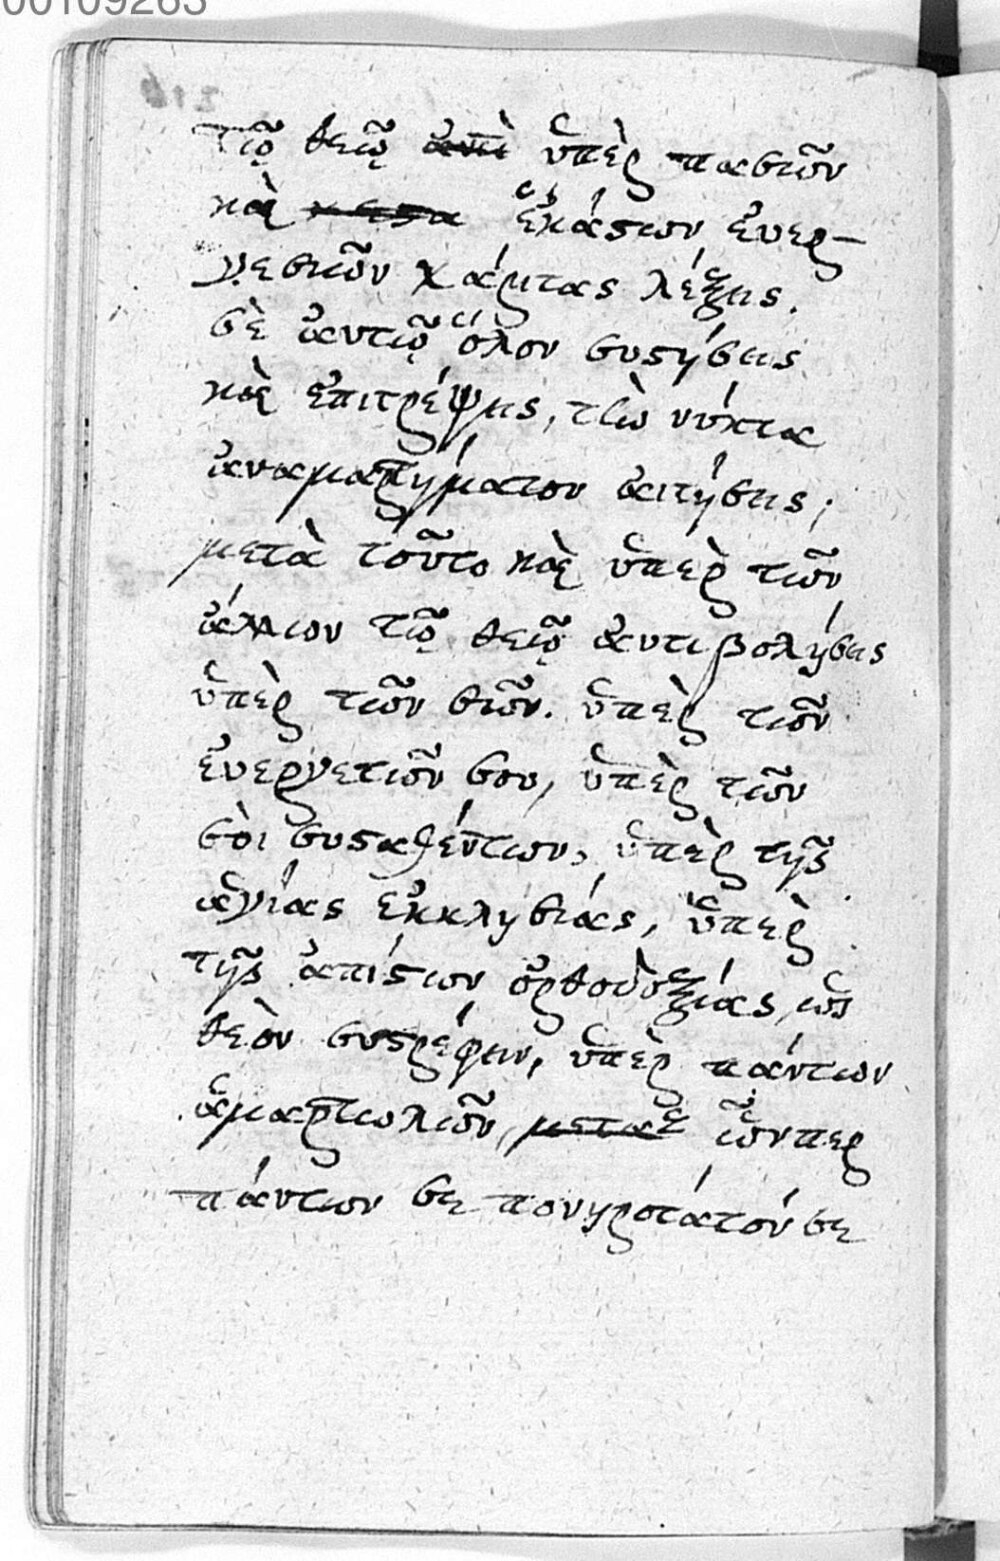 00109263
τῷ θεῷ ἀντὶ ὑπὲρ πασῶν
καὶ μετα ἑκάστων ἐυερ-
γεσιῶν χάριτας λέξῃς.
σὲ ἀυτῷ ὅλον συστήσῃς
καὶ ἐπιτρέψῃς, τὼ νύκτα
ἀναμαρτήματον ἀιτήσῃς;
μετὰ τοῦτο καὶ ὑπὲρ τῶν
ἄλλων τῷ θεῷ ἀντιβολήσῃς
ὑπὲρ τῶν σῶν. ὑπὲρ τῶν
ἐυεργετῶν σου, ὑπὲρ τῶν
σὸι συσταθέντων, ὑπὲρ τῆς
ἁγίας ἐκκλησίας, ὑπὲρ
τῆς ἀπίστων ὀρθοδοξίας, ὡς
θεὸν συστρέφῃν, ὑπὲρ πάντων
ἁμαρτωλῶν, μετὰ ὧνπερ
πάντων σε πονηρότατόν σε